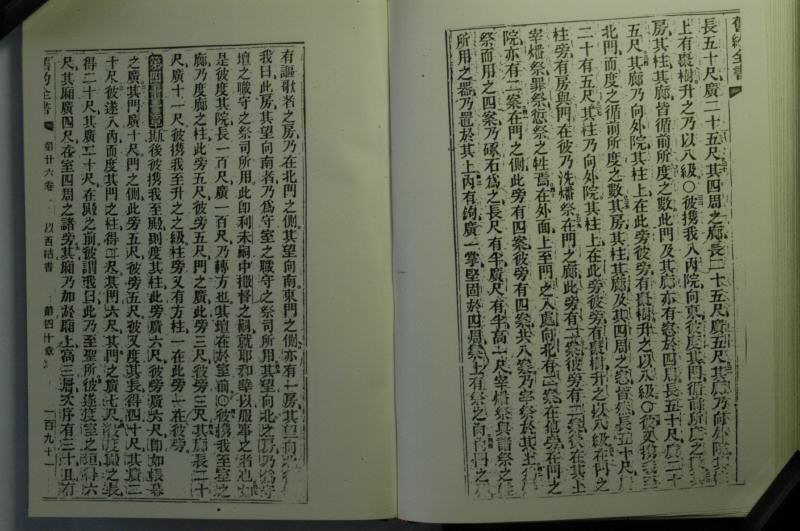 舊約全書
長五十尺廣二十五尺其四周之廊長二十五尺廣五尺其廊乃向外院其柱
上有棗樹升之乃以八級〇彼攜我入內院向東彼度其門循前所度之數其
房其柱其廊皆循前所度之數此門及其廊亦有窓於四周長五十尺廣二十
五尺其廊乃向外院其柱上在此旁彼旁有棗樹升之以八級〇彼又攜我至
北門而度之循前所度之數其房其柱其廊及其四周之窓皆然長五十尺廣
二十有五尺其柱乃向外院其柱上在此旁彼旁有棗樹升之以八級在門之
柱旁有房與門在彼乃洗燔祭在門之廊此旁有二案彼旁有二案在其上
宰燔祭罪祭愆祭之牲焉在外面上至門之入處向北有二案在他旁在門之
院亦有二案在門之側此旁有四案彼旁有四案共八案乃宰祭於其上
祭而用之四案乃琢石爲之長尺有半廣尺有半高一尺宰燔祭與諸祭之
所用之器乃置於其上內有鉤廣一掌堅固於四周案上有祭之肉
有謳歌者之房乃在北門之側其望向南東門之側亦有一房其望向北
我曰此房其望向南者乃爲守室之職守之祭司所用其望向北之房乃爲守
壇之職守之祭司所用此即利未嗣中撒督之嗣就耶和華以服事之者也
是彼度其院長一百尺廣一百尺乃轉方也其壇在於室前〇彼攜我至室之
廊乃度廊之柱此旁五尺彼旁五尺門之廣此旁三尺彼旁三尺其廊長二十
尺廣十一尺彼攜我至升之之級柱旁又有方柱一在此旁一在彼旁
斯後彼攜我至殿則度其柱此旁廣六尺彼旁廣六尺即如帳幕
之廣其門廣十尺門之側此旁五尺彼旁五尺彼又度其長得四十尺其廣二
十尺彼遂入內而度其門之柱得二尺其門六尺其門之廣七尺彼度殿之長
得二十尺其廣二十尺在殿之前彼謂我曰此乃至聖所彼遂度室之垣得六
尺其廂廣四尺在室四周之諸旁其廂乃加於廂上高三層次序有三十且有
舊約全書 第廿六卷 以西結書 第四十章 一百九十一